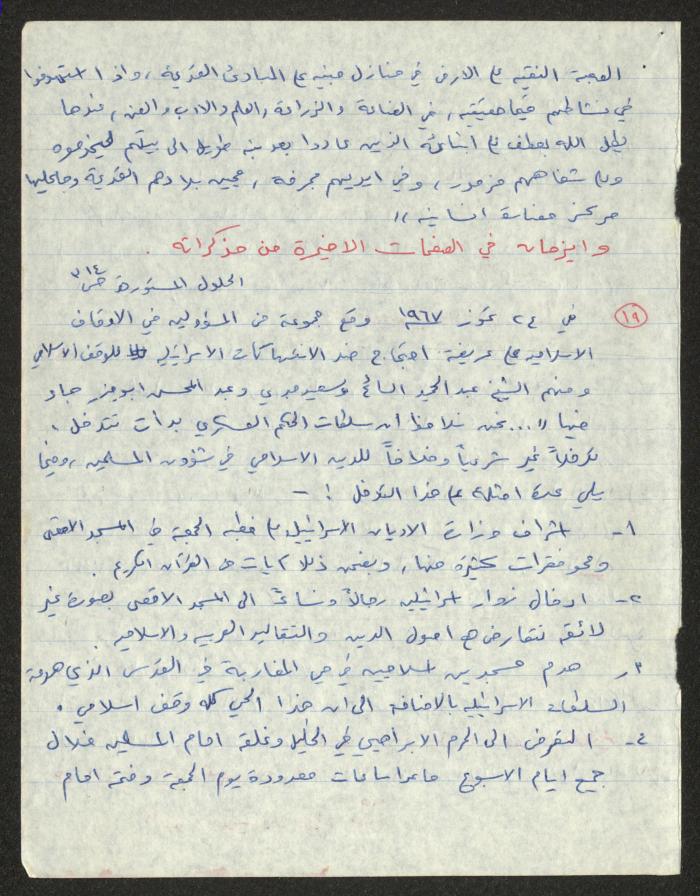 الصحبة النقية على الارض في منازل مبنية على المبادئ القديمة، واذا استهدفوا
في نشاطهم قيماً حقيقية، في الصناعة والزراعة والعلم والادب والفن، عندها
يطل الله بعطف على ابنائه الذين عادوا بعد تيه طويل الى بيتهم ليخدموه
وعلى شفاههم مزمور، وفي ايديهم مجرفة، محيين بلادهم القديمة وجاعليها
مركز حضارة انسانية"
وايزمان في الصفحات الاخيرة من مذكراته.
الحلول المستوردة ص ٣١٤
(١٩) في ٢٤ تموز ١٩٦٧ وقع مجموعة من المسؤولين في الاوقاف
الاسلامية على عريضة احتجاج ضد الانتهاكات الاسرائيلية للوقف الاسلامي
ومنهم الشيخ عبد الحميد السائح وسعيد صبري وعبد المحسن ابو ميزر جاء
فيها "... نحن نلاحظ ان سلطات الحكم العسكري بدأت تتدخل،
تدخلاً غير شرعياً وخلافاً للدين الاسلامي في شؤون المسلمين، وفيما
يلي عدة امثلة على هذا التدخل :-
١- اشراف وزارة الاديان الاسرائيلية على خطبة الجمعة في المسجد الاقصى
ومحو فقرات كثيرة منها، وبضمن ذلك آيات من القرآن الكريم.
٢- ادخال زوار اسرائيليين رجالاً ونساءً الى المسجد الاقصى بصورة غير
لائقة تتعارض مع اصول الدين والتقاليد العربية والاسلامية.
٣- هدم مسجدين اسلاميين في حي المغاربة في القدس الذي هدمته
السلطات الاسرائيلية بالاضافة الى ان هذا الحي كله وقف اسلامي.
٤- التعرض الى الحرم الابراهيمي في الخليل وغلقه امام المسلمين خلال
جميع ايام الاسبوع ما عدا ساعات معدودة يوم الجمعة وفتحه امام